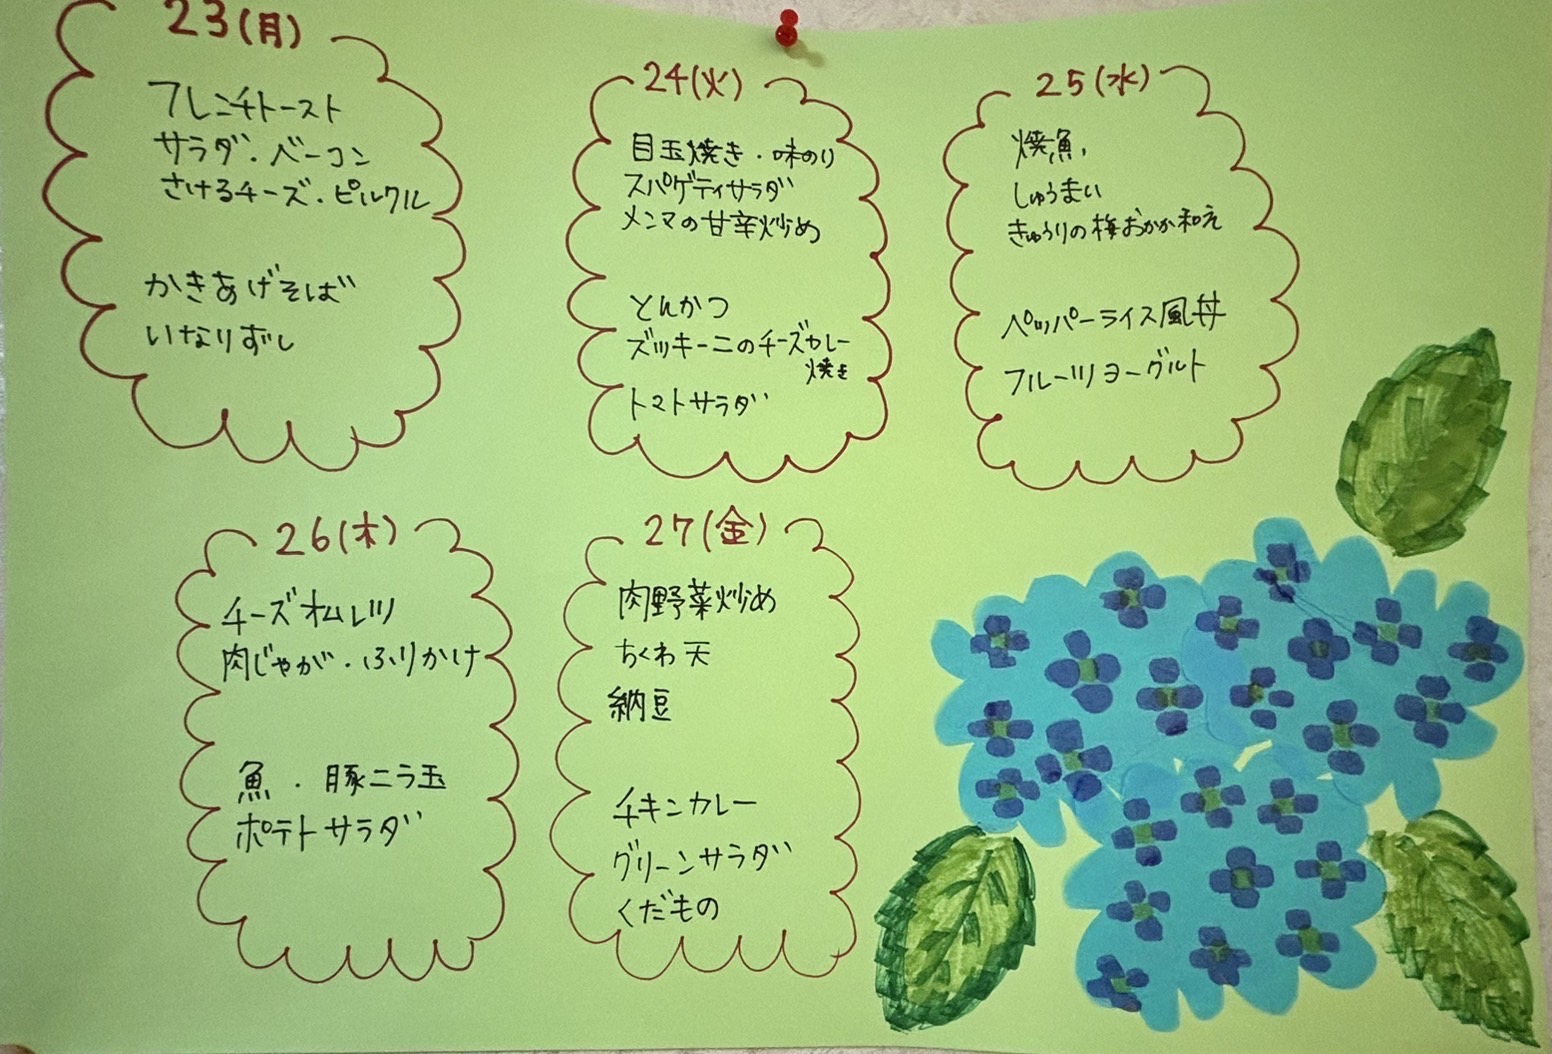 23(月)
フレンチトースト
サラダ・ベーコン
さけるチーズ・ピルクル
かきあげそば
いなりずし
24(火)
目玉焼き・味のり
スパゲティサラダ
メンマの甘辛炒め
とんかつ
ズッキーニのチーズカレー
焼き
トマトサラダ
25(水)
焼魚、
しゅうまい
きゅうりの梅おかか和え
ペッパーライス風丼
フルーツヨーグルト
26(木)
チーズオムレツ
肉じゃが・ふりかけ
魚・豚ニラ玉
ポテトサラダ
27(金)
肉野菜炒め
ちくわ天
納豆
チキンカレー
グリーンサラダ
くだもの